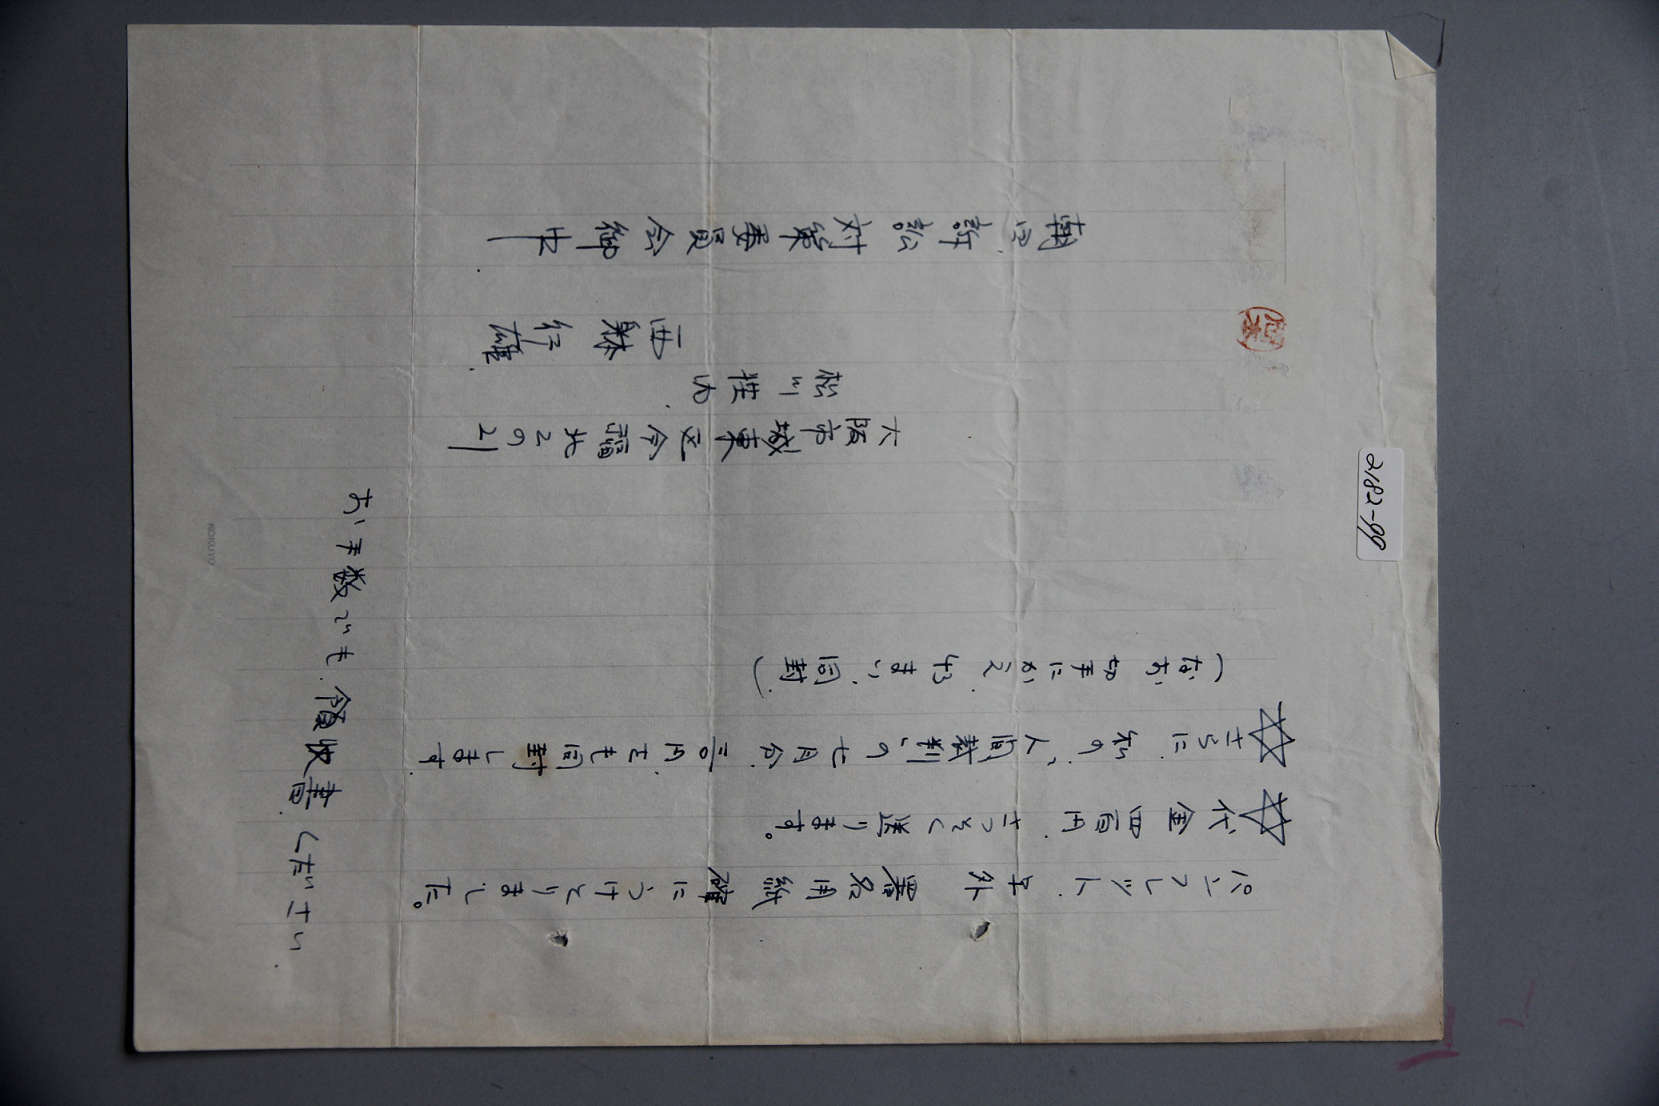 パンフレット、号外 署名用紙 確にうけとりました。
☆代金 四百円、さっそく送ります。
☆さらに、私の、人間裁判の七月分、三百円をも同封します。
(なお、切手にかえ、 同封)
大阪市城東区今福北2の21
松川荘内
西 行雄
朝日訴訟対策委員会御中
お手数でも、領収書、ください
KOKUYO
2182-99